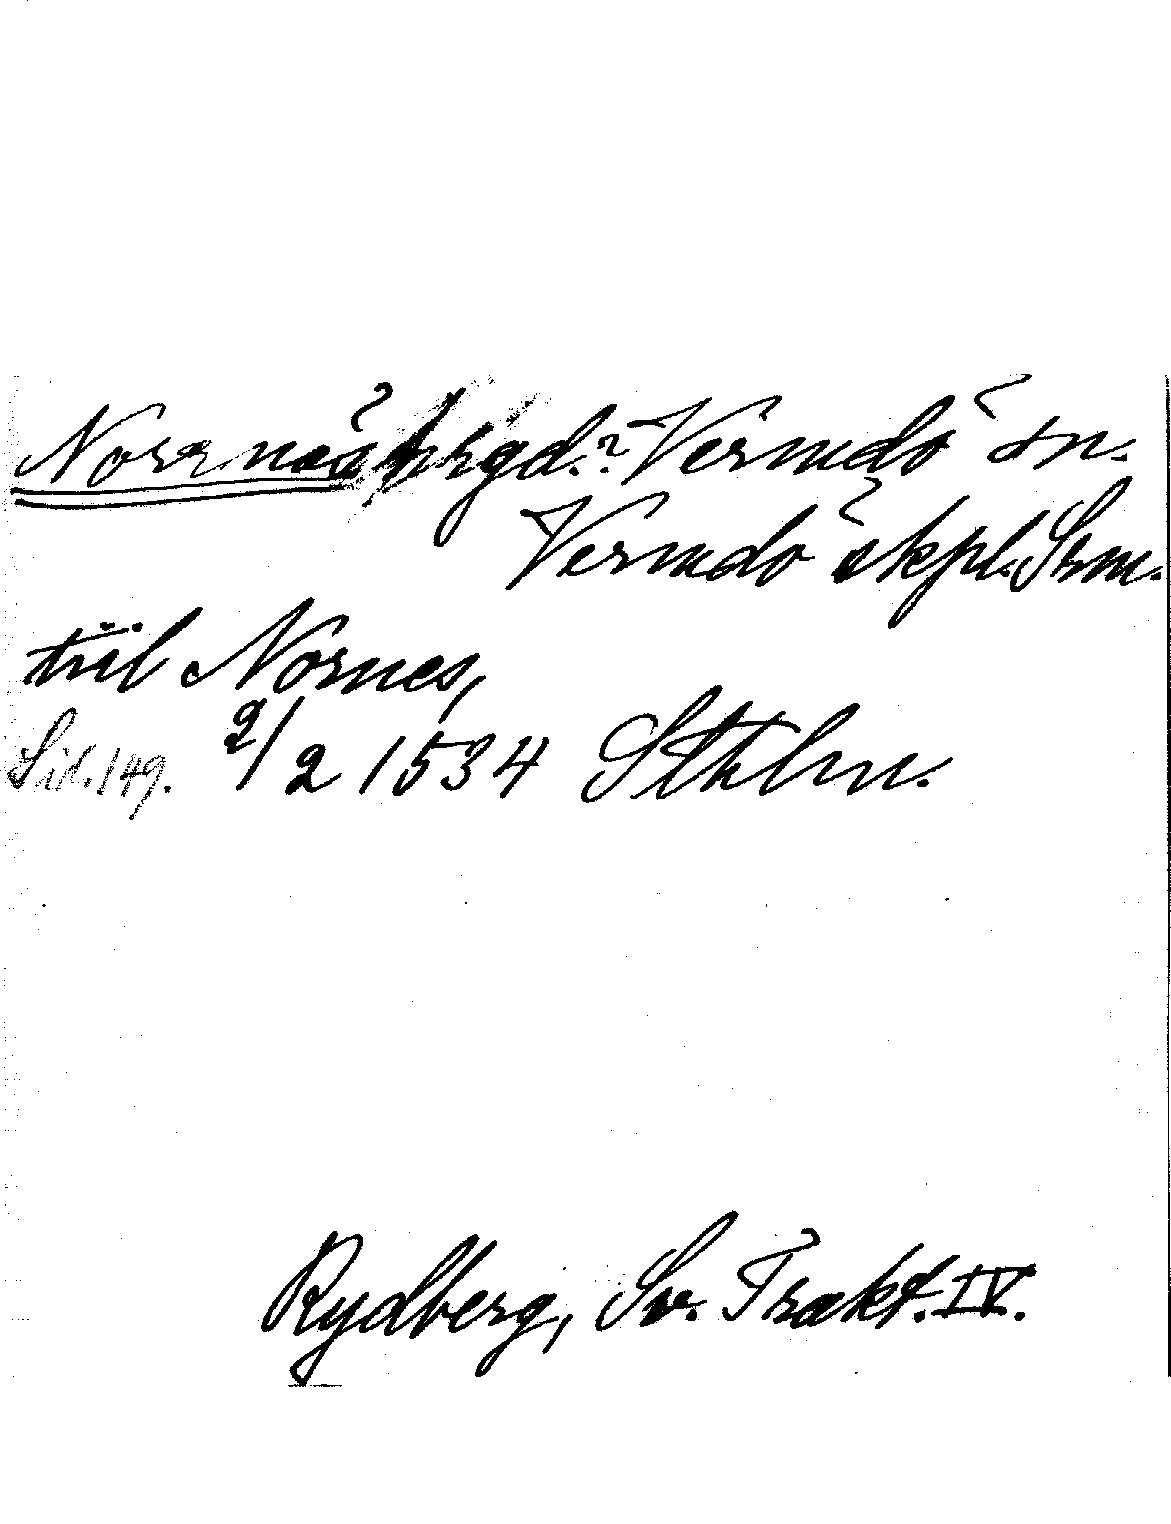 Norrnäs hrgd.? Vermdö sn.
Vermdö skpl. Srm.
tiil Nornes,
Sid. 149. 2/2 1534 Sthlm.
Rydberg, Sv. Trakt. IV.